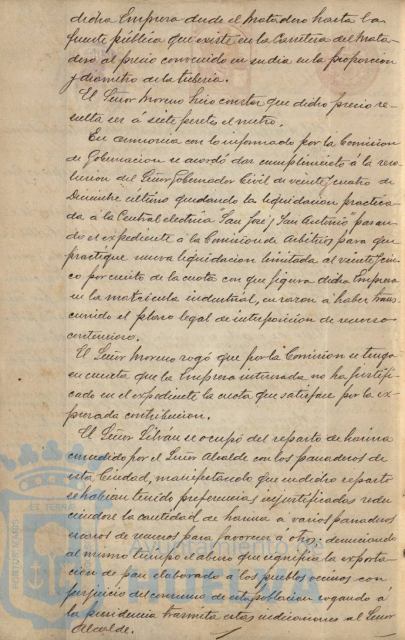 dicha Empresa desde el Matadero hasta la
fuente pública que existe en la Carretera del Mata-
dero al precio convenido en su dia en la proporcion
y diametro de la tuberia.
El Señor Moreno hizo constar que dicho precio re-
sulta ser á siete pesetas el metro.
En armonia con lo informado por la Comision
de Gobernacion se acordó dar cumplimiento á la reso-
lucion del Señor Gobernador Civil de veinte y cuatro de
Diciembre último quedando la liquidacion practica-
da á la Central electrica San José y San Antonio pasan-
do el expediente á la Comision de Arbitrios para que
practique nueva liquidacion limitada al veinte y cin-
co por ciento de la cuota con que figura dicha Empresa
en la matricula industrial, en razon á haber trans-
currido el plazo legal de interposicion de recurso
contencioso.
El Señor Moreno rogó que por la Comision se tenga
en cuenta que la Empresa interesada no ha justifi-
cado en el expediente la cuota que satisface por la ex-
presada contribucion.
El Señor se ocupó del reparto de harina
efectuado por el Señor Alcalde con los panaderos de
esta Ciudad, manifestando que en dicho reparto
se habian tenido preferencias injustificadas redu-
ciendose la cantidad de harina á varios panaderos
de para favorecer á otros; denunciando
al mismo tiempo el abuso que significa la exporta-
cion de pan elaborado á los pueblos vecinos con
perjuicio del consumo de esta poblacion rogando á
la presidencia trasmita estas indicaciones al Señor
Alcalde.